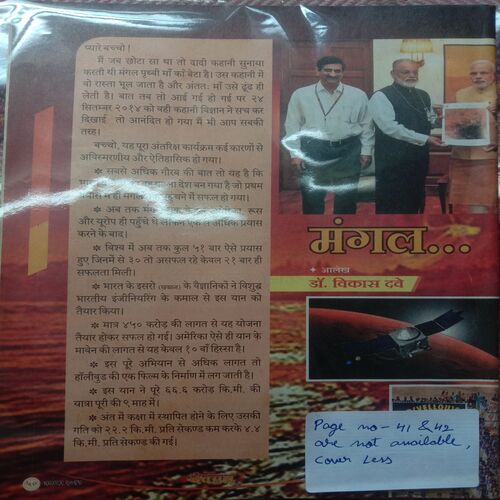 प्यारे बच्चो !
मैं जब छोटा सा था तो दादी कहानी सुनाया
करती थी मंगल पृथ्वी माँ का बेटा है। उस कहानी में
वो रास्ता भूल जाता है और अंततः माँ उसे ढूंढ ही
लेती है। बात तब तो आई गई हो गई पर २४
सितम्बर २०१४ को यही कहानी विज्ञान ने सच कर
दिखाई तो आनन्दित हो गया मैं भी आप सबकी
तरह।
बच्चो, यह पूरा अंतरिक्ष कार्यक्रम कई कारणों से
अविस्मरणीय और ऐतिहासिक हो गया।
* सबसे अधिक गौरव की बात तो यह है कि
देश बन गया है जो प्रथम
में सफल हो गया।
* अब तक रूस
और यूरोप ही पहुंचे थे लेकिन अधिक प्रयास
करने के बाद।
* विश्व में अब तक कुल '५१ बार ऐसे प्रयास
हुए जिनमें से ३० तो असफल रहे केवल २१ बार ही
सफलता मिली।
* भारत के इसरो के वैज्ञानिकों ने विशुद्ध
भारतीय इंजीनियरिंग के कमाल से इस यान को
तैयार किया।
* मात्र ४५० करोड़ की लागत से यह योजना
तैयार होकर सफल हो गई। अमेरिका ऐसे ही यान के
मावेन की लागत से यह केवल १० वाँ हिस्सा है।
* इस पूरे अभियान से अधिक लागत तो
हॉलीवुड की एक फिल्म के निर्माण में लग जाती है।
* इस यान ने पूरे ६६.६ करोड़ कि.मी. की
यात्रा पूरी की ९ माह में।
* अंत में कक्षा में स्थापित होने के लिए उसकी
गति को २२.२ कि.मी. प्रति सेकण्ड कम करके ४.४
कि.मी. प्रति सेकण्ड की गई।
मंगल...
✦ आलेख
डॉ. विकास दवे
Page no - 41 & 42
are not available,
cover less